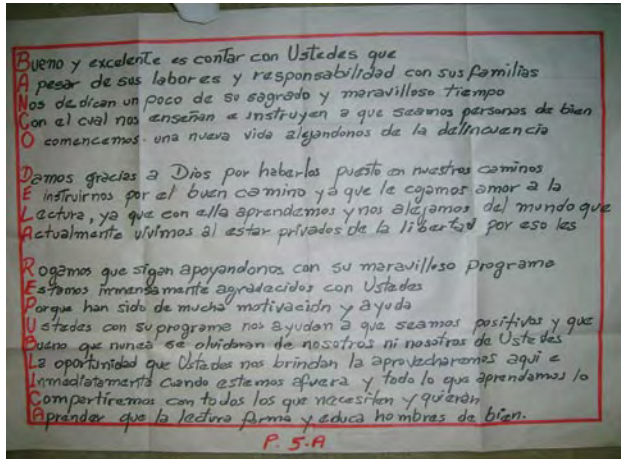 Bueno y excelente es contar con Ustedes que
A pesar de sus labores y responsabilidad con sus familias
Nos dedican un poco de su sagrado y maravilloso tiempo
Con el cual nos enseñan e instruyen a que seamos personas de bien
O comencemos una nueva vida alejandonos de la delincuencia
Damos gracias a Dios por haberlos puesto en nuestros caminos
E instruirnos por el buen camino ya que le cojamos amor a la
Lectura, ya que con ella aprendemos y nos alejamos del mundo que
Actualmente vivimos al estar privados de la libertad por eso les
Rogamos que sigan apoyandonos con su maravilloso programa
Estamos inmensamente agradecidos con Ustedes
Porque han sido de mucha motivación y ayuda
Ustedes con su programa nos ayudan a que seamos positivos y que
Bueno que nunca se olvidaran de nosotros ni nosotros de Ustedes
La oportunidad que Ustedes nos brindan la aprovecharemos aqui e
Inmediatamente cuando estemos afuera y todo lo que aprendamos lo
Compartiremos con todos los que necesiten y quieran
Aprender que la lectura forma y educa hombres de bien.
P. 5.A